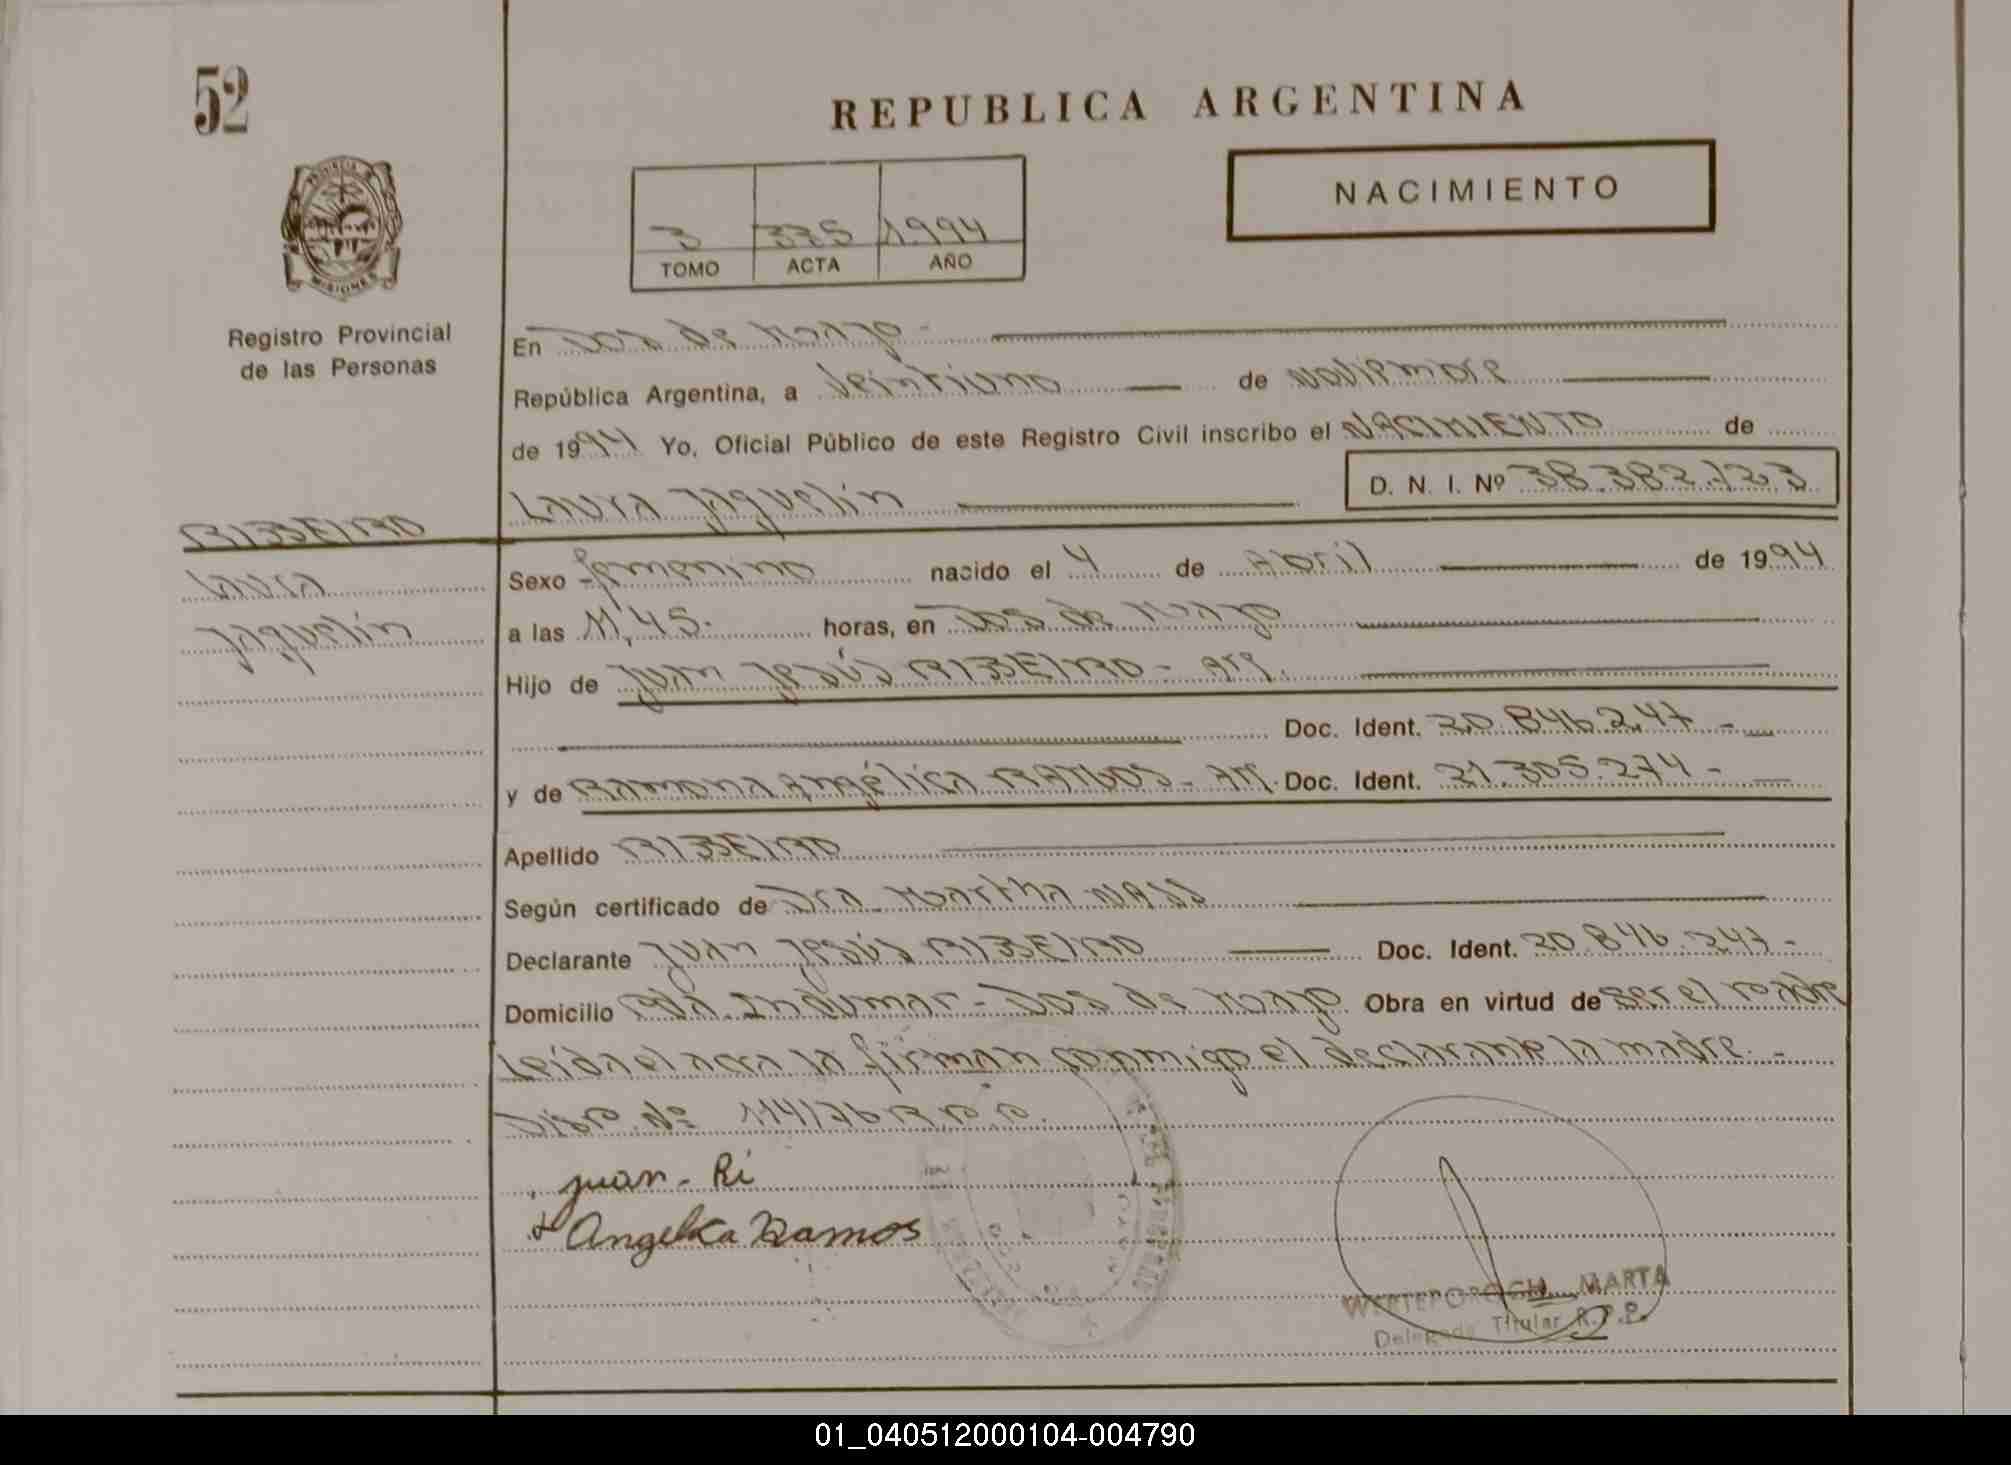 52
REPUBLICA ARGENTINA
NACIMIENTO
3 335 1.994
TOMO ACTA AÑO
PROVINCIA DE
MISIONES
Registro Provincial
de las Personas
En Dos de Mayo-
República Argentina, a Veintiuno de Noviembre
de 1994 Yo, Oficial Público de este Registro Civil inscribo el NACIMIENTO de
D. N. I. Nº 38.382.123
Laura Jaquelin
RIBEIRO
Laura
Jaquelin
Sexo femenino nacido el 4 de Abril de 1994
a las 11,45. horas, en Dos de Mayo
Hijo de Juan Jesús RIBEIRO - Arg.
Doc. Ident. 20.846.247 -
y de Ramona Angélica RAMOS - Arg. Doc. Ident. 21.305.274 -
Apellido RIBEIRO
Según certificado de Dra. Martha NASS
Declarante Juan Jesús RIBEIRO Doc. Ident. 20.846.247 -
Domicilio Pda. Indumar - Dos de Mayo Obra en virtud de ser el padre
Leída el acta la firman conmigo el declarante la madre. -
Disp. Nº 114/76 R.P.P.
juan - Ri
Angelica Ramos
MARTA
Delegada Titular R.P.P.
01_040512000104-004790